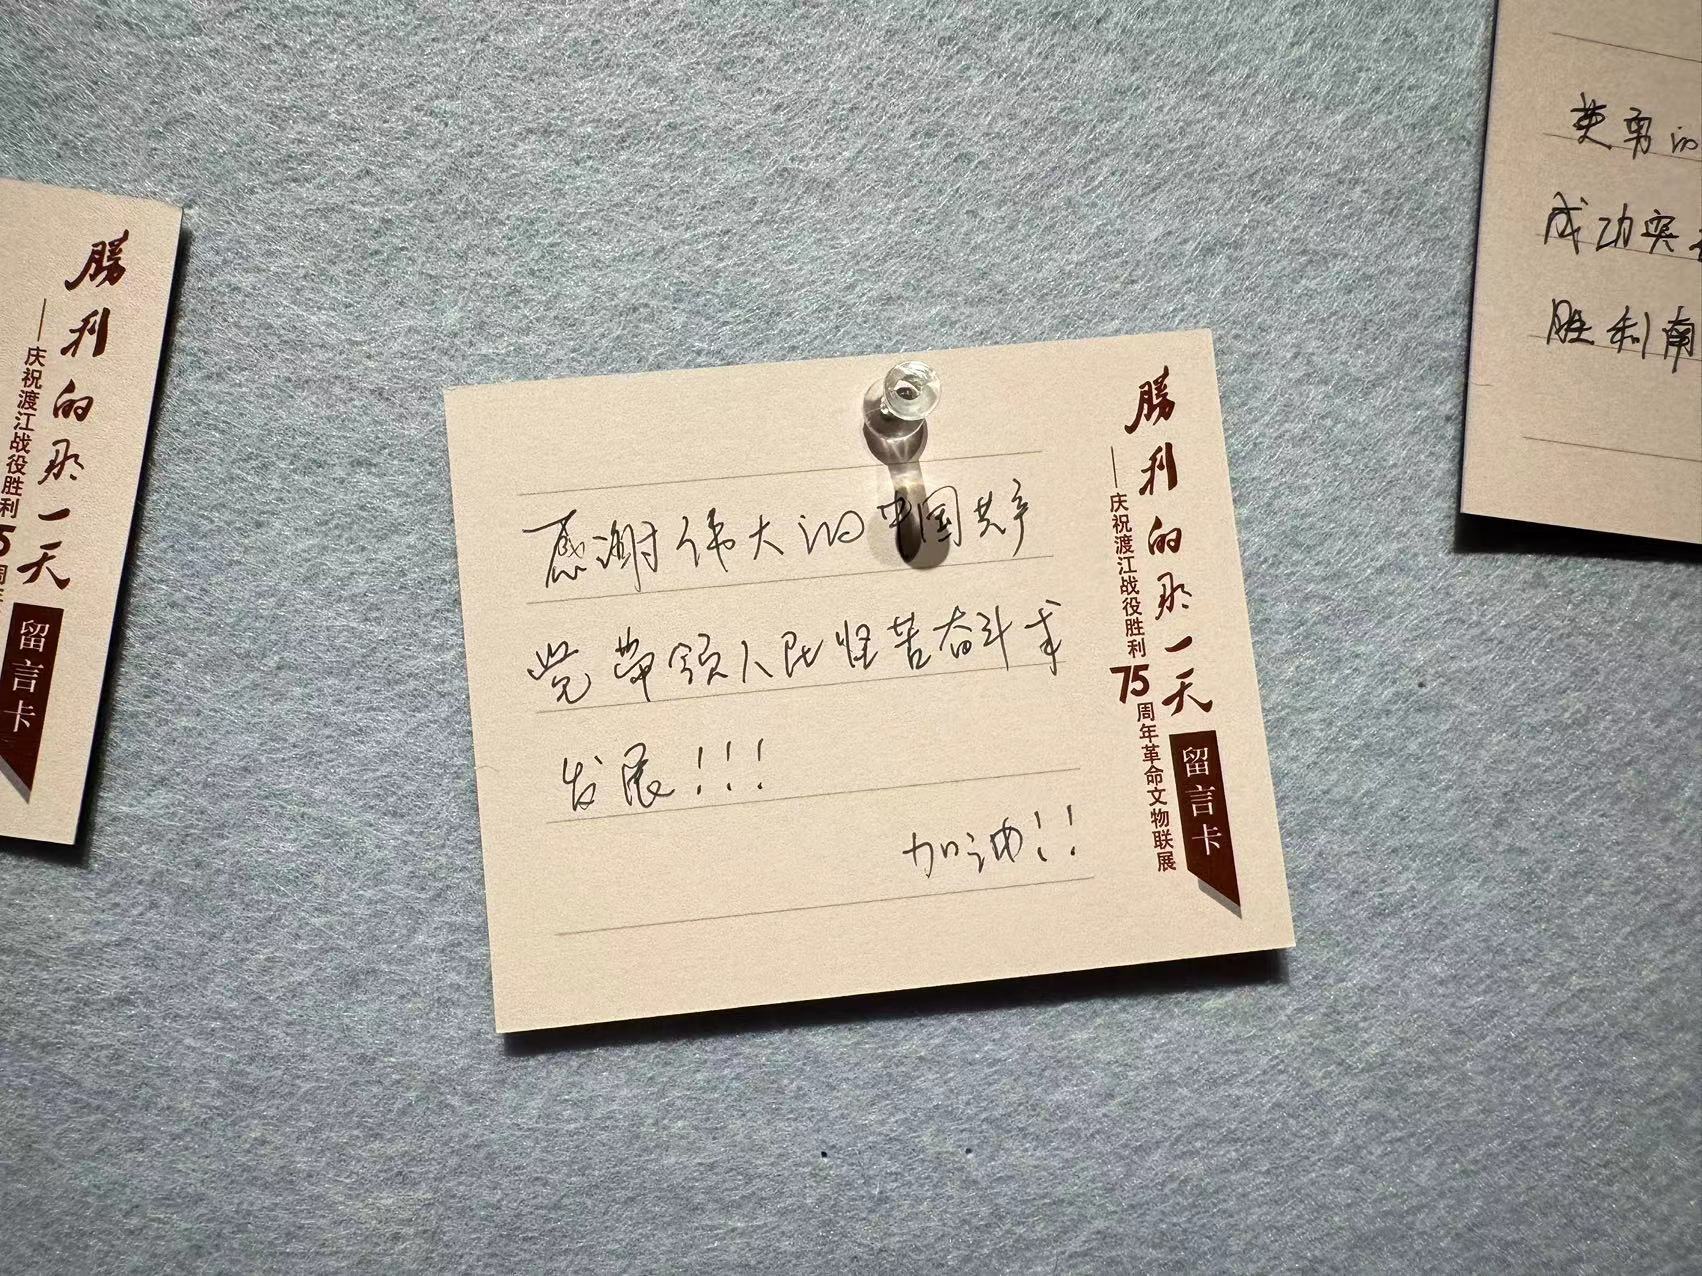 勝利的那一天
——庆祝渡江战役胜利
5周年
留言卡
感谢伟大的中国共产
党带领人民坚苦奋斗求
发展！！！
加油！！
勝利的那一天
——庆祝渡江战役胜利75周年革命文物联展
留言卡
英勇的
成功突
胜利南